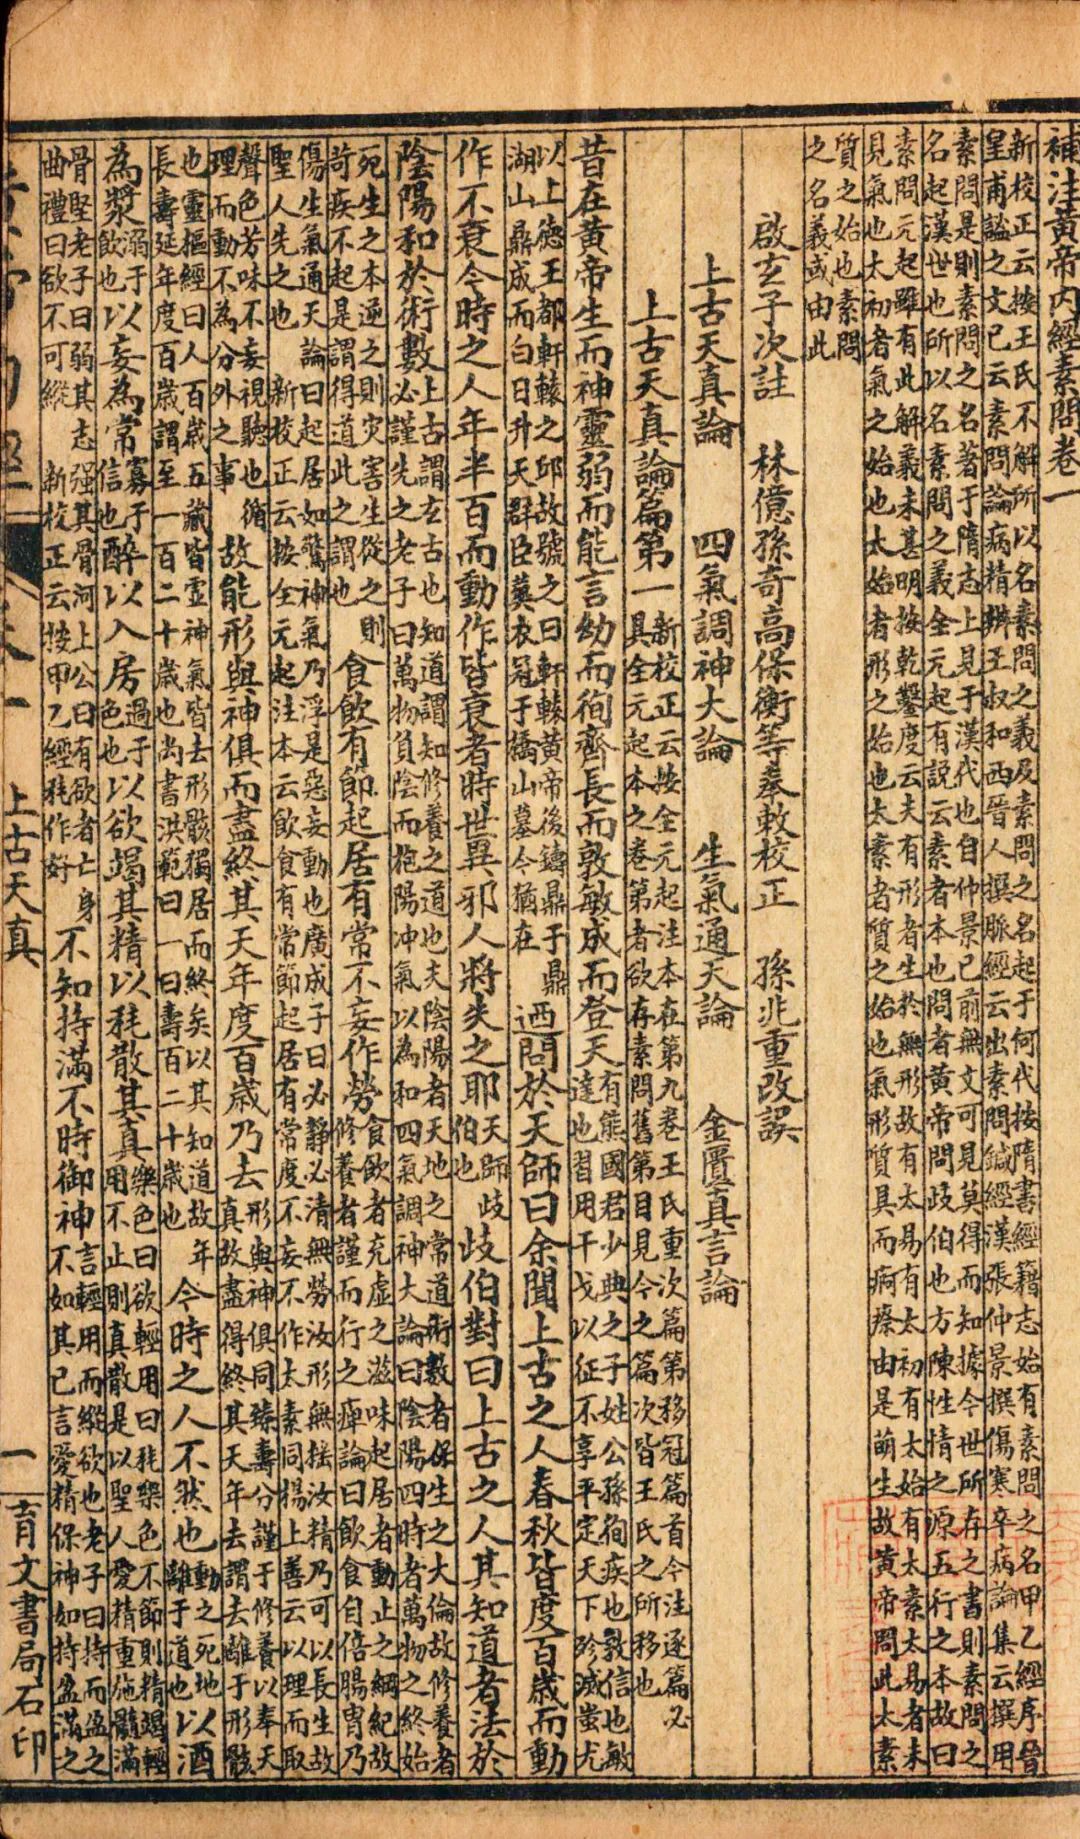 補注黃帝内經素問卷一
新校正云按王氏不解所以名素問之義及素問之名起于何代按隋書經籍志始有素問之名甲乙經序晉
皇甫謐之文已云素問論病精辨王叔和西晉人撰脈經云出素問鍼經漢張仲景撰傷寒卒病論集云撰用
素問是則素問之名著于隋志上見于漢代也自仲景已前無文可見莫得而知據今世所存之書則素問之
名起漢世也所以名素問之義全元起有説云素者本也問者黃帝問歧伯也方陳性情之源五行之本故曰
素問元起雖有此解義未甚明按乾鑿度云夫有形者生於無形故有太易有太初有太始有太素太易者未
見氣也太初者氣之始也太始者形之始也太素者質之始也氣形質具而痾瘵由是萌生故黃帝問此太素
質之始也素問
之名義或由此
啟玄子次註 林億孫奇高保衡等奉敕校正 孫兆重改誤
上古天真論 四氣調神大論 生氣通天論 金匱真言論
上古天真論篇第一
新校正云按全元起注本在第九卷王氏重次篇第移冠篇首今注逐篇必
具全元起本之卷第者欲存素問舊第目見今之篇次皆王氏之所移也
昔在黃帝生而神靈弱而能言幼而徇齊長而敦敏成而登天
有熊國君少典之子姓公孫徇疾也敦信也敏
達也習用干戈以征不享平定天下殄滅蚩尤
以上德王都軒轅之邱故號之曰軒轅黃帝後鑄鼎于鼎
湖山鼎成而白日升天群臣葬衣冠于橋山墓今猶在
迺問於天師曰余聞上古之人春秋皆度百歲而動
作不衰今時之人年半百而動作皆衰者時世異邪人將失之耶
天師歧
伯也
歧伯對曰上古之人其知道者法於
陰陽和於術數
上古謂玄古也知道謂知修養之道也夫陰陽者天地之常道術數者保生之大倫故修養者
必謹先之老子曰萬物負陰而抱陽冲氣以為和四氣調神大論曰陰陽四時者萬物之終始
死生之本逆之則灾害生從之則
苛疾不起是謂得道此之謂也
食飲有節起居有常不妄作勞
食飲者充虛之滋味起居者動止之綱紀故
修養者謹而行之痺論曰飲食自倍腸胃乃
傷生氣通天論曰起居如驚神氣乃浮是惡妄動也廣成子曰必靜必清無勞汝形無搖汝精乃可以長生故
聖人先之也 新校正云按全元起注本云飲食有常節起居有常度不妄不作太素同楊上善云以理而取
聲色芳味不妄視聽也循
理而動不為分外之事
故能形與神俱而盡終其天年度百歲乃去
形與神俱同臻壽分謹于修養以奉天
真故盡得終其天年去謂去離于形骸
也靈樞經曰人百歲五藏皆虛神氣皆去形骸獨居而終矣以其知道故年
長壽延年度百歲謂至一百二十歲也尚書洪範曰一曰壽百二十歲也
今時之人不然也
動之死地
離于道也
以酒
為漿
溺于
飲也
以妄為常
寡于
信也
醉以入房
過于
色也
以欲竭其精以耗散其真
樂色曰欲輕用曰耗樂色不節則精竭輕
用不止則真散是以聖人愛精重施髓滿
骨堅老子曰弱其志强其骨河上公曰有欲者亡身
曲禮曰欲不可縱 新校正云按甲乙經耗作好
不知持滿不時御神
言輕用而縱欲也老子曰持而盈之
不如其已言愛精保神如持盈滿之
上古天真
一
育文書局石印